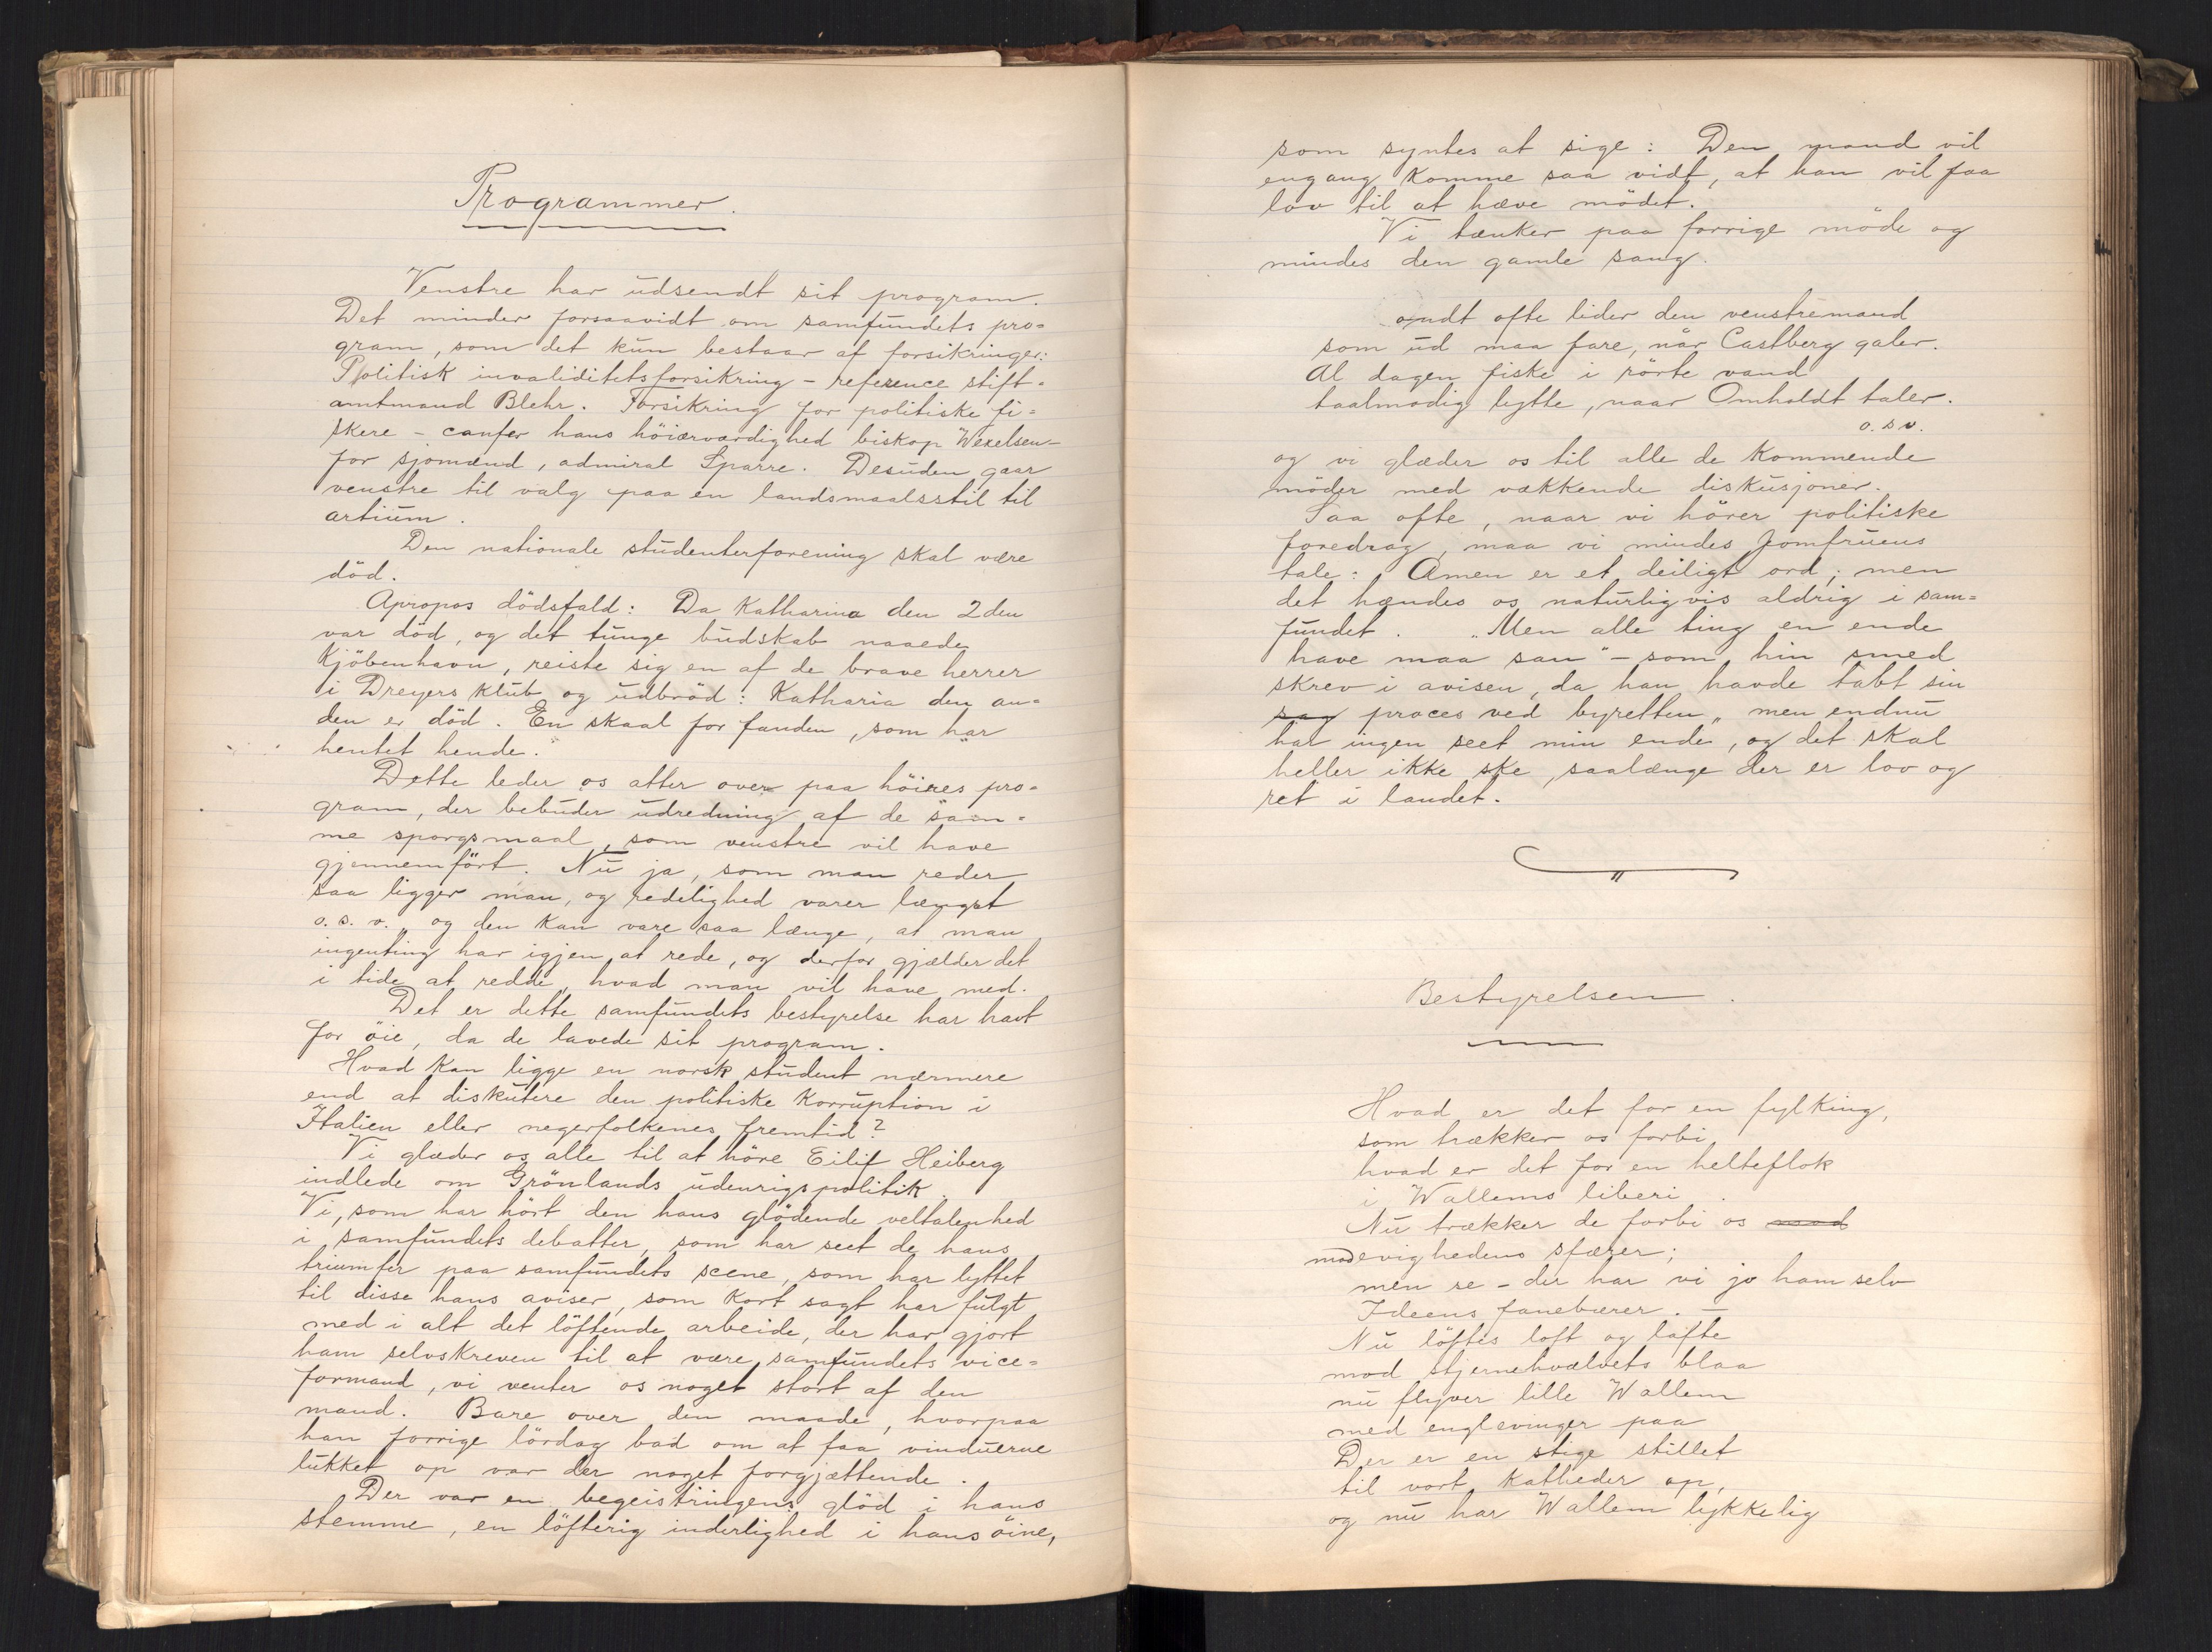 Programmer.
Venstre har udsendt sit program.
Det minder forsaavidt om samfundets pro=
gram, som det kun bestaar af forsikringer:
Politisk invaliditetsforsikring – reference stift=
amtmand Blehr. Forsikring for politiske fi=
skere – canfer hans höiærværdighed biskop Wexelsen –
for sjömænd, admiral Sparre. Desuden gaar
venstre til valg paa en landsmaalsstil til
artium.
Den nationale studenterforening skal være
död.
Apropos dödsfald: Da Katharina den 2den
var död, og det tunge budskab naaede
Kjöbenhavn, reiste sig en af de brave herrer
i Dreyers klub og udbröd: Katharia den an=
den er död. En skaal for fanden, som har
hentet hende."
Dette leder os atter over paa höires pro=
gram, der bebuder udredning af de sam=
me sporgsmaal, som venstre vil have
gjennemfört. Nu ja, som man reder
saa ligger man, og redelighed varer længst
o. s. v. og den kan vare saa længe, at man
ingenting har igjen at rede, og derfor gjælder det
i tide at redde, hvad man vil have med.
Det er dette samfundets bestyrelse har havt
for öie, da de lavede sit program.
Hvad kan ligge en norsk student nærmere
end at diskutere den politiske korruption i
Italien eller negerfolkenes fremtid?
Vi glæder os alle til at höre Eilif Heiberg
indlede om Grönlands udenrigspolitik.
Vi, som har hört den hans glödende veltalenhed
i samfundets debatter, som har seet de hans
triumfer paa samfundets scene, som har lyttet
til disse hans aviser, som kort sagt har fulgt
med i alt det löftende arbeide, der har gjort
ham selvskreven til at være samfundets vice=
formand, vi venter os noget stort af den
mand. Bare over den maade, hvorpaa
han forrige lördag bad om at faa vinduerne
lukket op var der noget forgjættende.
Der var en begeistringens glöd i hans
stemme, en löfterig inderlighed i hans öine,
som syntes at sige: Den mand vil
engang komme saa vidt, at han vil faa
lov til at hæve mödet.
Vi tænker paa forrige möde og
mindes den gamle sang.
ondt ofte lider den venstremand
som ud maa fare, når Castberg galer.
Al dagen fiske i rörte vand
taalmodig lytte, naar Omholdt taler.
o. s v.
og vi glæder os til alle de kommende
möder med vækkende diskusjoner.
Saa ofte, naar vi hörer politiske
foredrag, maa vi mindes Jomfruens
tale: Amen er et deiligt ord; men
det hændes os naturligvis aldrig i sam=
fundet. "Men alle ting en ende
have maa saa" – som hin smed
skrev i avisen, da han havde tabt sin
sag proces ved byretten „ men endnu
har ingen seet min ende, og det skal
heller ikke ske, saalænge der er lov og
ret i landet.
Bestyrelsen.
Hvad er det for en fylking,
som trækker os forbi,
hvad er det for en helteflok
i Wallems liberi.
Nu trækker de forbi os mod
mod evighedens sfærer;
men se – der har vi jo ham selv
Ideens fanebærer. –
Nu löftes loft og lofte
mod stjernehvælvets blaa
nu flyver lille Wallem
med englevinger paa
Der er en stige stillet
til vort katheder op,
og nu har Wallem lykkelig